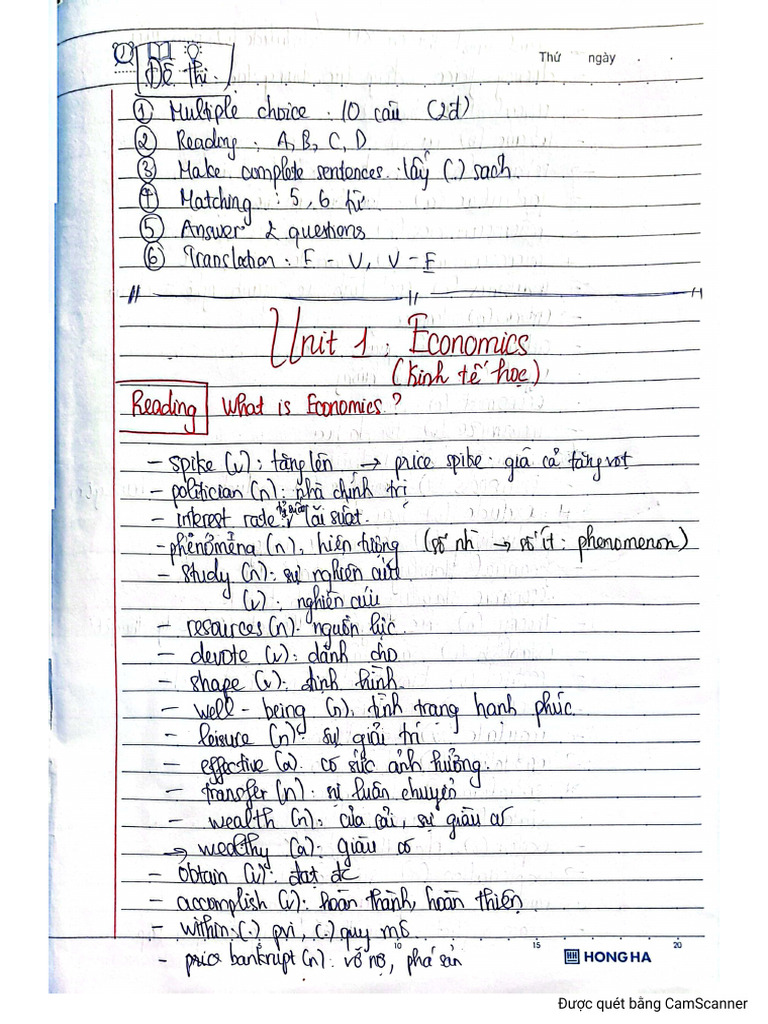 Thứ ngày
Đề thi.
① Multiple choice : 10 câu (2đ)
② Reading : A, B, C, D
③ Make complete sentences : lấy (.) sách
④ Matching : 5, 6 từ
⑤ Answer 2 questions
⑥ Translation : E - V, V - E
Unit 1 : Economics
(Kinh tế học)
Reading What is Economics ?
- spike (v) : tăng lên → price spike : giá cả tăng vọt
- politician (n) : nhà chính trị
- interest rate : lãi suất.
- phenomena (n) : hiện tượng (số nhì → số ít : phenomenon)
- study (n) : sự nghiên cứu
(v) : nghiên cứu
- resources (n) : nguồn lực
- devote (v) : dành cho
- shape (v) : định hình
- well - being (n) : tình trạng hạnh phúc
- leisure (n) : sự giải trí
- effective (a) có sức ảnh hưởng.
- transfer (n) : sự luân chuyển
- wealth (n) : của cải, sự giàu có
→ wealthy (a) : giàu có
- obtain (v) : đạt đc
- accomplish (v) : hoàn thành, hoàn thiện
- within : (.) pvi, (.) quy mô
- price bankrupt (n) : vỡ nợ, phá sản
5 10 15 HH HONG HA 20
Được quét bằng CamScanner